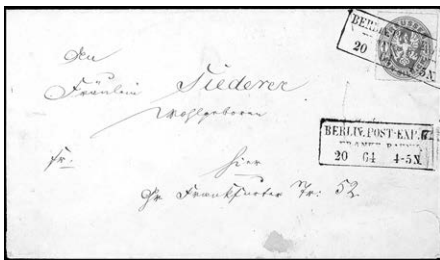 BERLIN
20
5N.
Den
Fräulein Tiederer
Wohlgeboren
fr.
hier
Gr Frankfurter Nr: 52
BERLIN, POST-EXP.
20 64 4-5N